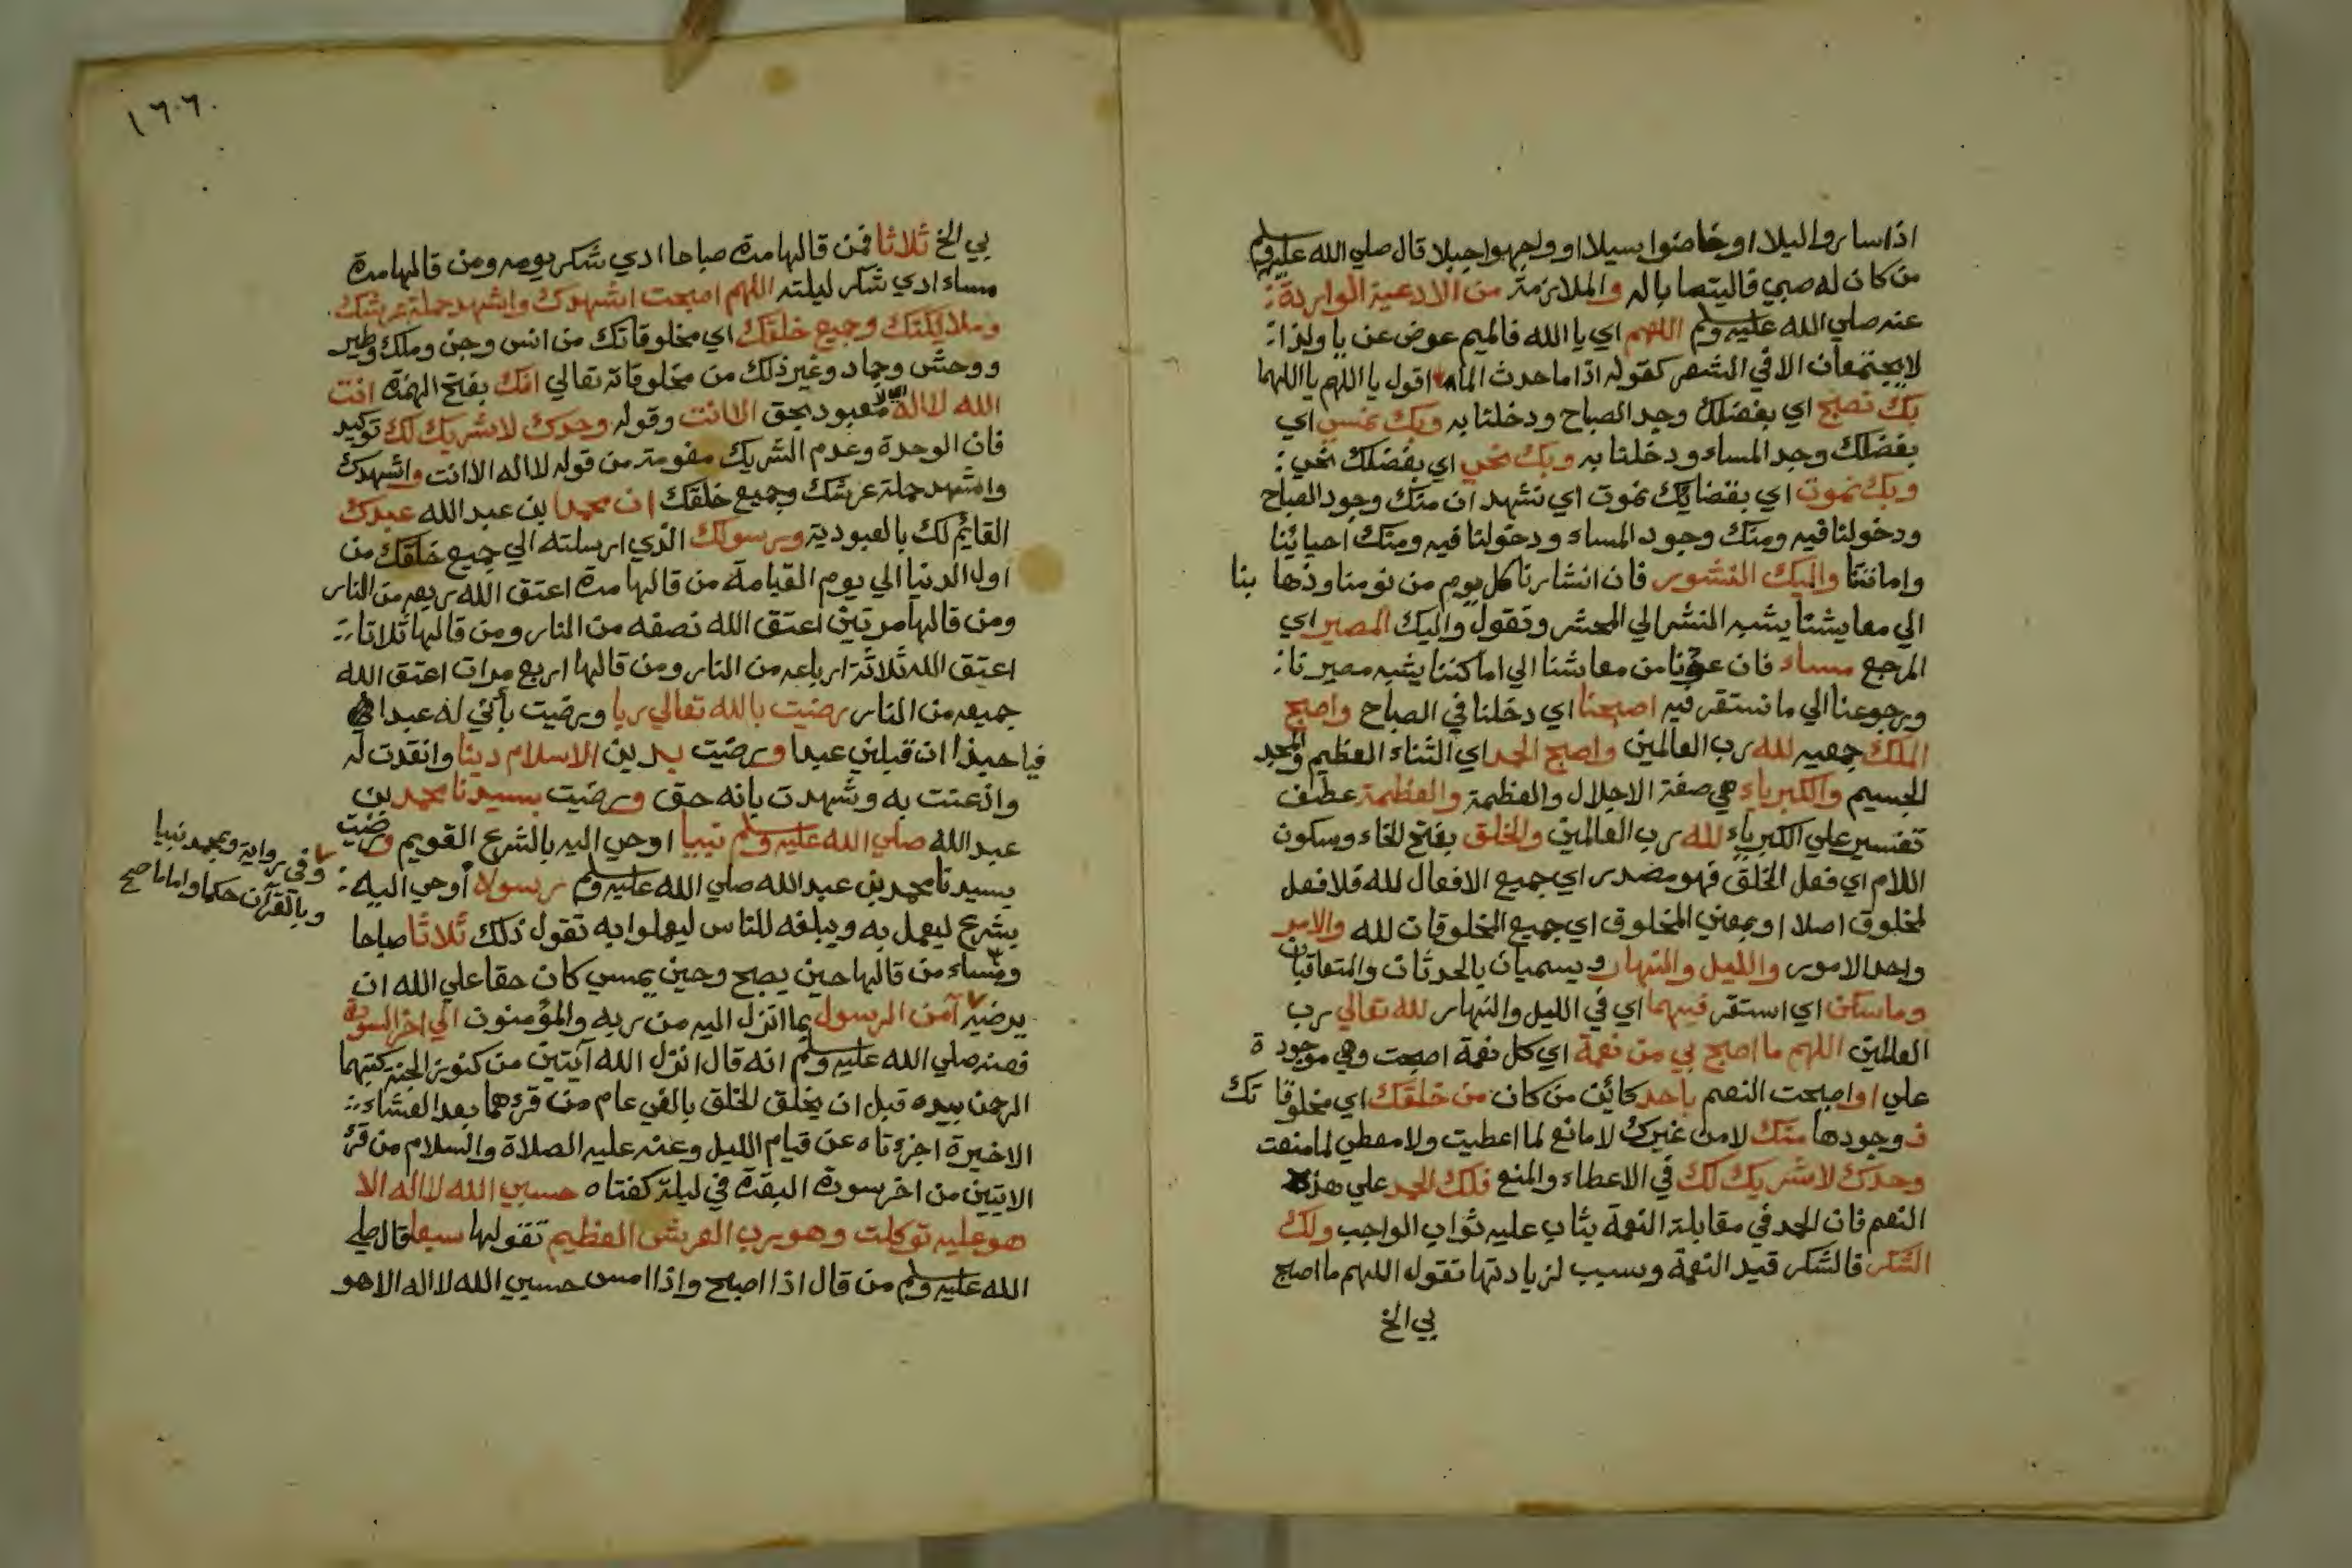 اذا ساروا ليلا او خاضوا سيلا او واجهوا جبلا قال صلي الله عليه وسلم
من كان له صبي فاليتصابا له والملازمة من الادعية الواردة
عنه صلي الله عليه وسلم اللهم اي يا الله فالميم عوض عن يا ولذا
لا يجتمعان الا في الشعر كقوله اذا ما حدث الما اقول يا اللهم يا اللهما
بك نصبح اي بفضلك وجد الصباح ودخلنا به وبك نمسي اي
بفضلك وجد المساء ودخلنا به وبك نحي اي بفضلك نحي
وبك نموت اي بقضايك نموت اي نشهد ان منك وجود الصباح
ودخولنا فيه ومنك وجود المساء ودخولنا فيه ومنك احيائنا
واماتتنا واليك النشور فان انتشارنا كل يوم من نومنا وذهابنا
الي معايشنا يشبه المنشر الي المحشر وتقول واليك المصير اي
المرجع مساء فان عودنا من معاشنا الي اماكننا يشبه مصيرنا
ورجوعنا الي ما نستقر فيه اصبحنا اي دخلنا في الصباح واصبح
الملك جميعه لله رب العالمين واصبح الحمد اي الثناء العظيم والمجد
الجسيم والكبرياء هي صفة الاجلال والعظمة والعظمة عطف
تفسير علي الكبرياء لله رب العالمين والخلق بفتح الخاء وسكون
اللام اي فعل الخلق فهو مصدر اي جميع الافعال لله فلا فعل
لمخلوق اصلا او بمعني المخلوق اي جميع المخلوقات لله والامر
واحد الامور والليل والنهار ويسميان بالحدثان والمتعاقبان
وما سكن اي استقر فيهما اي في الليل والنهار لله تعالي رب
العالمين اللهم ما اصبح بي من نعمة اي كل نعمة اصبحت وهي موجودة
علي او اصبحت النعم باحد كائن من كان من خلقك اي مخلوقاتك
فوجودها منك لا من غيرك لا مانع لما اعطيت ولا معطي لما منعت
وحدك لا شريك لك في الاعطاء والمنع فلك الحمد علي هذه
النعم فان الحمد في مقابلة النعمة يثاب عليه ثواب الواجب ولك
الشكر فالشكر قيد النعمة وسبب لزيادتها تقول اللهم ما اصبح
بي الخ
١٦٠٦
بي الخ ثلاثا فمن قالها مرة صباحا ادي شكر يومه ومن قالها مرة
مساء ادي شكر ليلته اللهم اصبحت اشهدك واشهد حملة عرشك
وملايكتك وجميع خلقك اي مخلوقاتك من انس وجن وملك وطير
ووحش وجماد وغير ذلك من مخلوقاته تعالي انك بفتح الهمزة انت
الله لا اله اي لا معبود بحق الا انت وقوله وحدك لا شريك لك توكيد
فان الوحدة وعدم الشريك مفهومة من قوله لا اله الا انت واشهدك
واشهد حملة عرشك وجميع خلقك ان محمدا بن عبد الله عبدك
القايم لك بالعبودية ورسولك الذي ارسلته الي جميع خلقك من
اول الدنيا الي يوم القيامة من قالها مرة اعتق الله ربعه من النار
ومن قالها مرتين اعتق الله نصفه من النار ومن قالها ثلاثا
اعتق الله ثلاثة ارباعه من النار ومن قالها اربع مرات اعتق الله
جميعه من النار رضيت بالله تعالي ربا ورضيت بأني له عبدا
فيا حبذا ان قبلني عبدا ورضيت بدين الاسلام دينا وانقدت له
واذعنت به وشهدت بانه حق ورضيت بسيدنا محمد بن
عبد الله صلي الله عليه وسلم نبيا اوحي اليه بالشرع القويم ورضيت
بسيدنا محمد بن عبد الله صلي الله عليه وسلم رسولا أوحي اليه
بشرع ليعمل به ويبلغه للناس ليعملوا به تقول ذلك ثلاثا صباحا
ومساء من قالها حين يصبح وحين يمسي كان حقا علي الله ان
يرضيه آمن الرسول بما انزل اليه من ربه والمؤمنون الي اخر السورة
فعنه صلي الله عليه وسلم انه قال انزل الله آيتين من كنوز الجنة كتبهما
الرحمن بيده قبل ان يخلق الخلق بالفي عام من قرءهما بعد العشاء
الاخيرة اجزءتاه عن قيام الليل وعنه عليه الصلاة والسلام من قرء
الايتين من اخر سورة البقرة في ليلة كفتاه حسبي الله لا اله الا
هو عليه توكلت وهو رب العرش العظيم تقولها سبعا قال صلي
الله عليه وسلم من قال اذا اصبح واذا امسى حسبي الله لا اله الا هو
وفي رواية وبمحمد نبيا
وبالقرآن حكما واماما صح